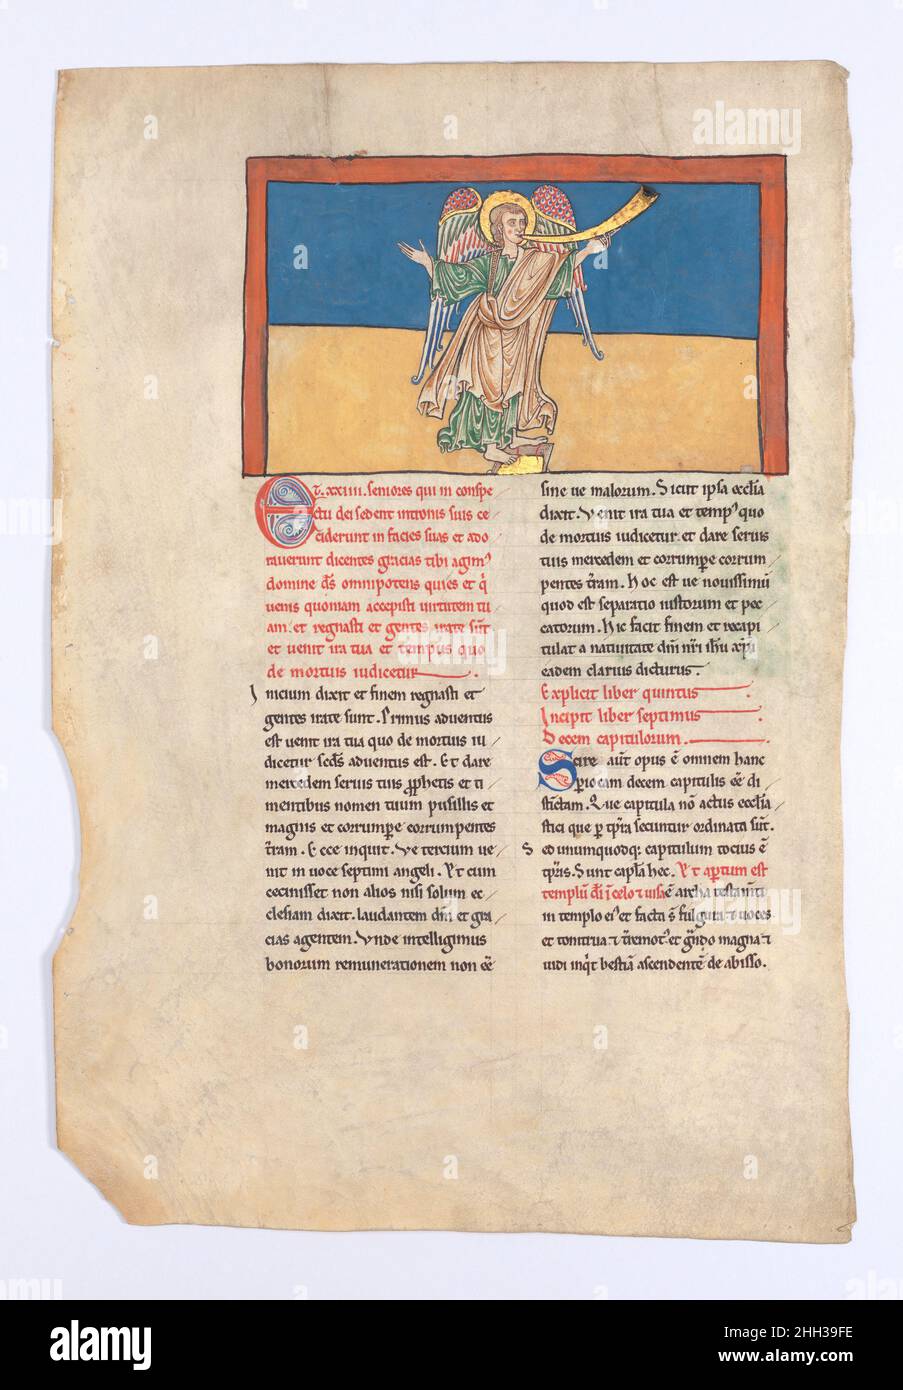 Et .xxiiii. seniores qui in conspe
ctu dei sedent in tronis suis ce
ciderunt in facies suas et ado
raverunt dicentes gracias tibi agim'
domine d̄s omnipotens qui es et q̇
venis quoniam accepisti virtutem tu
am. et regnasti et gentes irate sūt
et venit ira tua et tempus quo
de mortuis iudicetur.
Inicium dixit et finem regnasti et
gentes irate sunt. Primus adventus
est venit ira tua quo de mortuis iu
dicetur scd̄s adventus est. Et dare
mercedem servis tuis prophetis et ti
mentibus nomen tuum pusillis et
magnis et corrumpe corrumpentes
tr̄am. Ecce inquit. Ve tercium ve
nit in voce septimi angeli. Et cum
cecinisset non alios nisi solum ec
clesiam dixit. laudantem dm̄ et gra
cias agentem. Vnde intelligimus
bonorum remunerationem non eē
sine ve malorum. Sicut ipsa eccl̄ia
dixit. Venit ira tua et temp' quo
de mortuis iudicetur. et dare servis
tuis mercedem et corrumpe corrum
pentes tr̄am. Hoc est ve novissimū
quod est separatio iustorum et pec
catorum. Hic facit finem et recapi
tulat a nativitate dm̄i nr̄i ih̄u xp̄i
eadem clarius dicturus.
Explicit liber quintus
Incipit liber septimus
Decem capitulorum.
Scire aut̄ opus ē omnem hanc
piocam decem capitulis eē di
stīctam. Que capitula nō actus eccl̄ia
stici que p tp̄ra secuntur ordinata sūt.
Sed unumquodq: capitulum tocius ē
tp̄ris. Sunt capl̄a hec. Et apertum est
templū dī ī celo et visa ē archa testam̄ti
in templo ei' et facta s̄ fulgura et voces
et tonitrua et tr̄emot' et grādo magna et
vidi inq̇t bestiam ascendentē de abisso.
alamy
alamy
Image ID: 2HH39FE
www.alamy.com